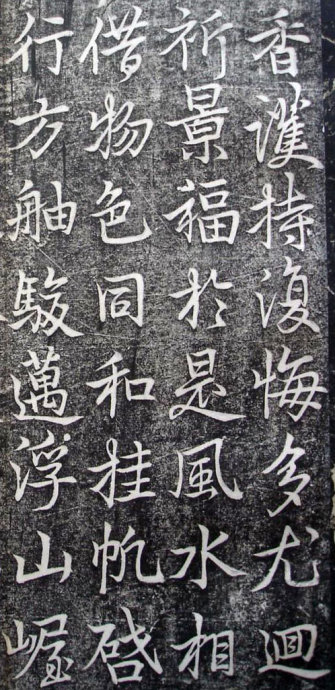 香護持復悔多尤迴
祈景福於是風水相
借物色同和挂帆啓
行方舳駿邁浮山崛